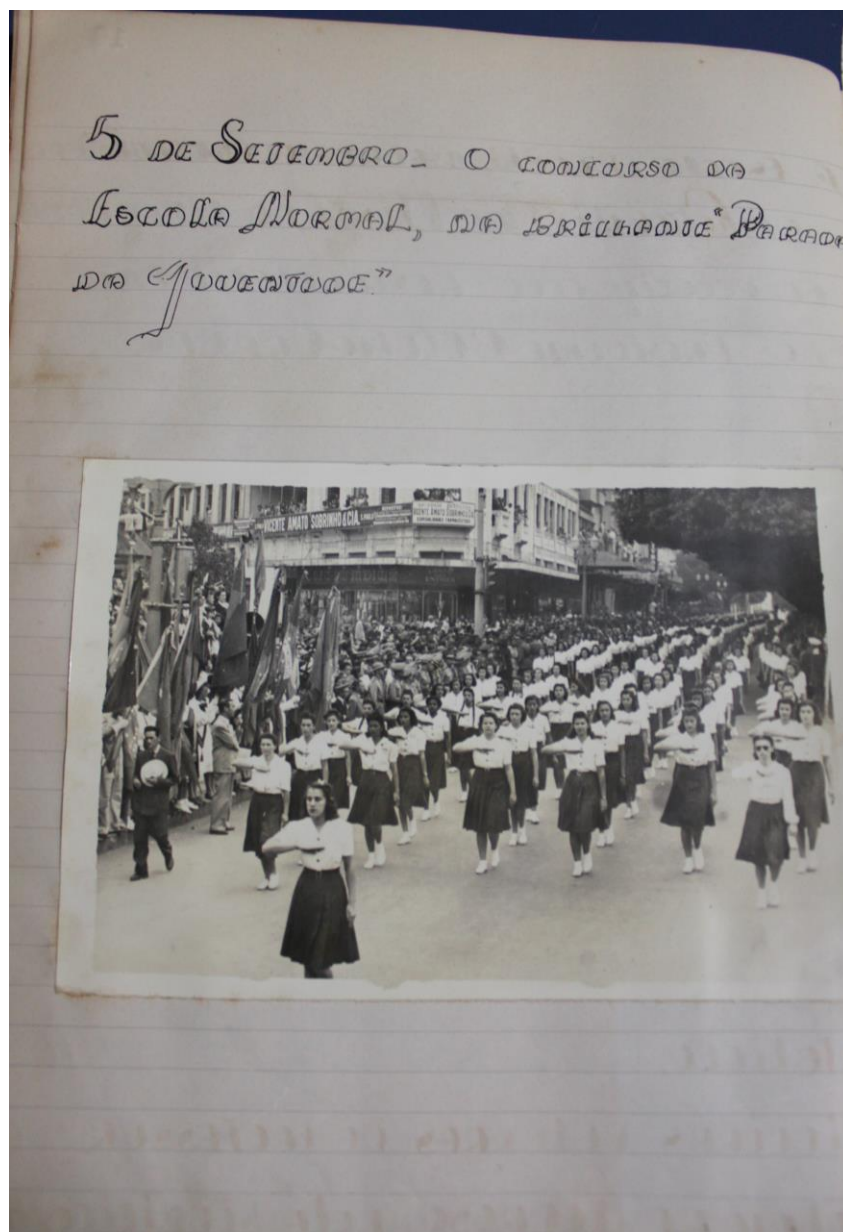 5 DE SETEMBRO - O CONCURSO DA
ESCOLA NORMAL, NA BRILHANTE "PARADA
DA JUVENTUDE"
VICENTE AMATO SOBRINHO & CIA.
VICENTE AMATO SOBRINHO